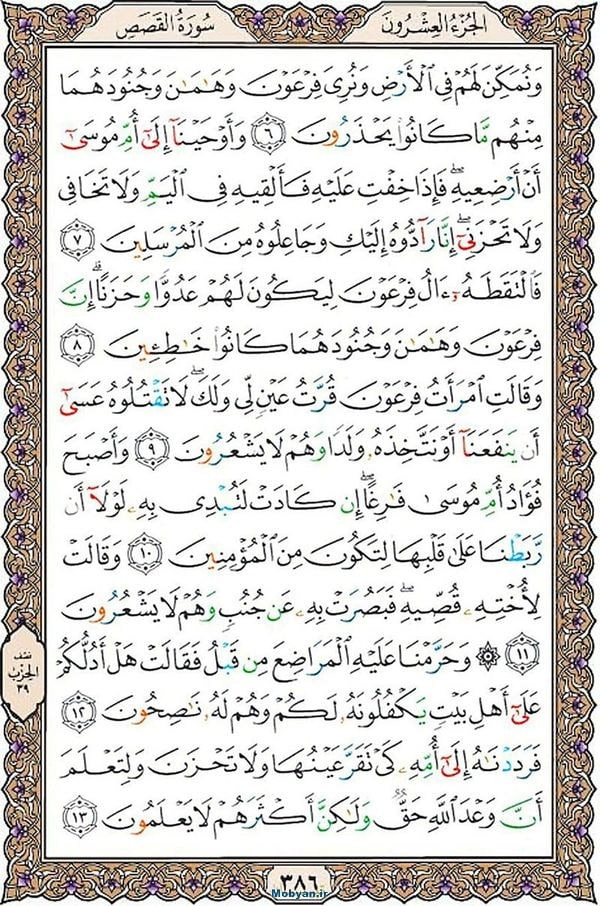 الجُزءُ العِشرُون
سُورَةُ القَصَص
وَنُمَكِّنَ لَهُمْ فِى الْأَرْضِ وَنُرِىَ فِرْعَوْنَ وَهَـٰمَـٰنَ وَجُنُودَهُمَا
مِنْهُم مَّا كَانُوا۟ يَحْذَرُونَ ٦ وَأَوْحَيْنَآ إِلَىٰٓ أُمِّ مُوسَىٰٓ
أَنْ أَرْضِعِيهِ ۖ فَإِذَا خِفْتِ عَلَيْهِ فَأَلْقِيهِ فِى الْيَمِّ وَلَا تَخَافِى
وَلَا تَحْزَنِىٓ ۖ إِنَّا رَآدُّوهُ إِلَيْكِ وَجَاعِلُوهُ مِنَ الْمُرْسَلِينَ ٧
فَالْتَقَطَهُۥٓ ءَالُ فِرْعَوْنَ لِيَكُونَ لَهُمْ عَدُوًّا وَحَزَنًا ۗ إِنَّ
فِرْعَوْنَ وَهَـٰمَـٰنَ وَجُنُودَهُمَا كَانُوا۟ خَـٰطِـِٔينَ ٨
وَقَالَتِ امْرَأَتُ فِرْعَوْنَ قُرَّتُ عَيْنٍ لِّى وَلَكَ ۖ لَا تَقْتُلُوهُ عَسَىٰٓ
أَن يَنفَعَنَآ أَوْ نَتَّخِذَهُۥ وَلَدًا وَهُمْ لَا يَشْعُرُونَ ٩ وَأَصْبَحَ
فُؤَادُ أُمِّ مُوسَىٰ فَـٰرِغًا ۖ إِن كَادَتْ لَتُبْدِى بِهِۦ لَوْلَآ أَن
رَّبَطْنَا عَلَىٰ قَلْبِهَا لِتَكُونَ مِنَ الْمُؤْمِنِينَ ١٠ وَقَالَتْ
لِأُخْتِهِۦ قُصِّيهِ ۖ فَبَصُرَتْ بِهِۦ عَن جُنُبٍ وَهُمْ لَا يَشْعُرُونَ
١١ ۞ وَحَرَّمْنَا عَلَيْهِ الْمَرَاضِعَ مِن قَبْلُ فَقَالَتْ هَلْ أَدُلُّكُمْ
عَلَىٰٓ أَهْلِ بَيْتٍ يَكْفُلُونَهُۥ لَكُمْ وَهُمْ لَهُۥ نَـٰصِحُونَ ١٢
فَرَدَدْنَـٰهُ إِلَىٰٓ أُمِّهِۦ كَىْ تَقَرَّ عَيْنُهَا وَلَا تَحْزَنَ وَلِتَعْلَمَ
أَنَّ وَعْدَ اللَّهِ حَقٌّ وَلَـٰكِنَّ أَكْثَرَهُمْ لَا يَعْلَمُونَ ١٣
نصف
الحِزب
٣٩
٣٨٦
Mobyan.ir